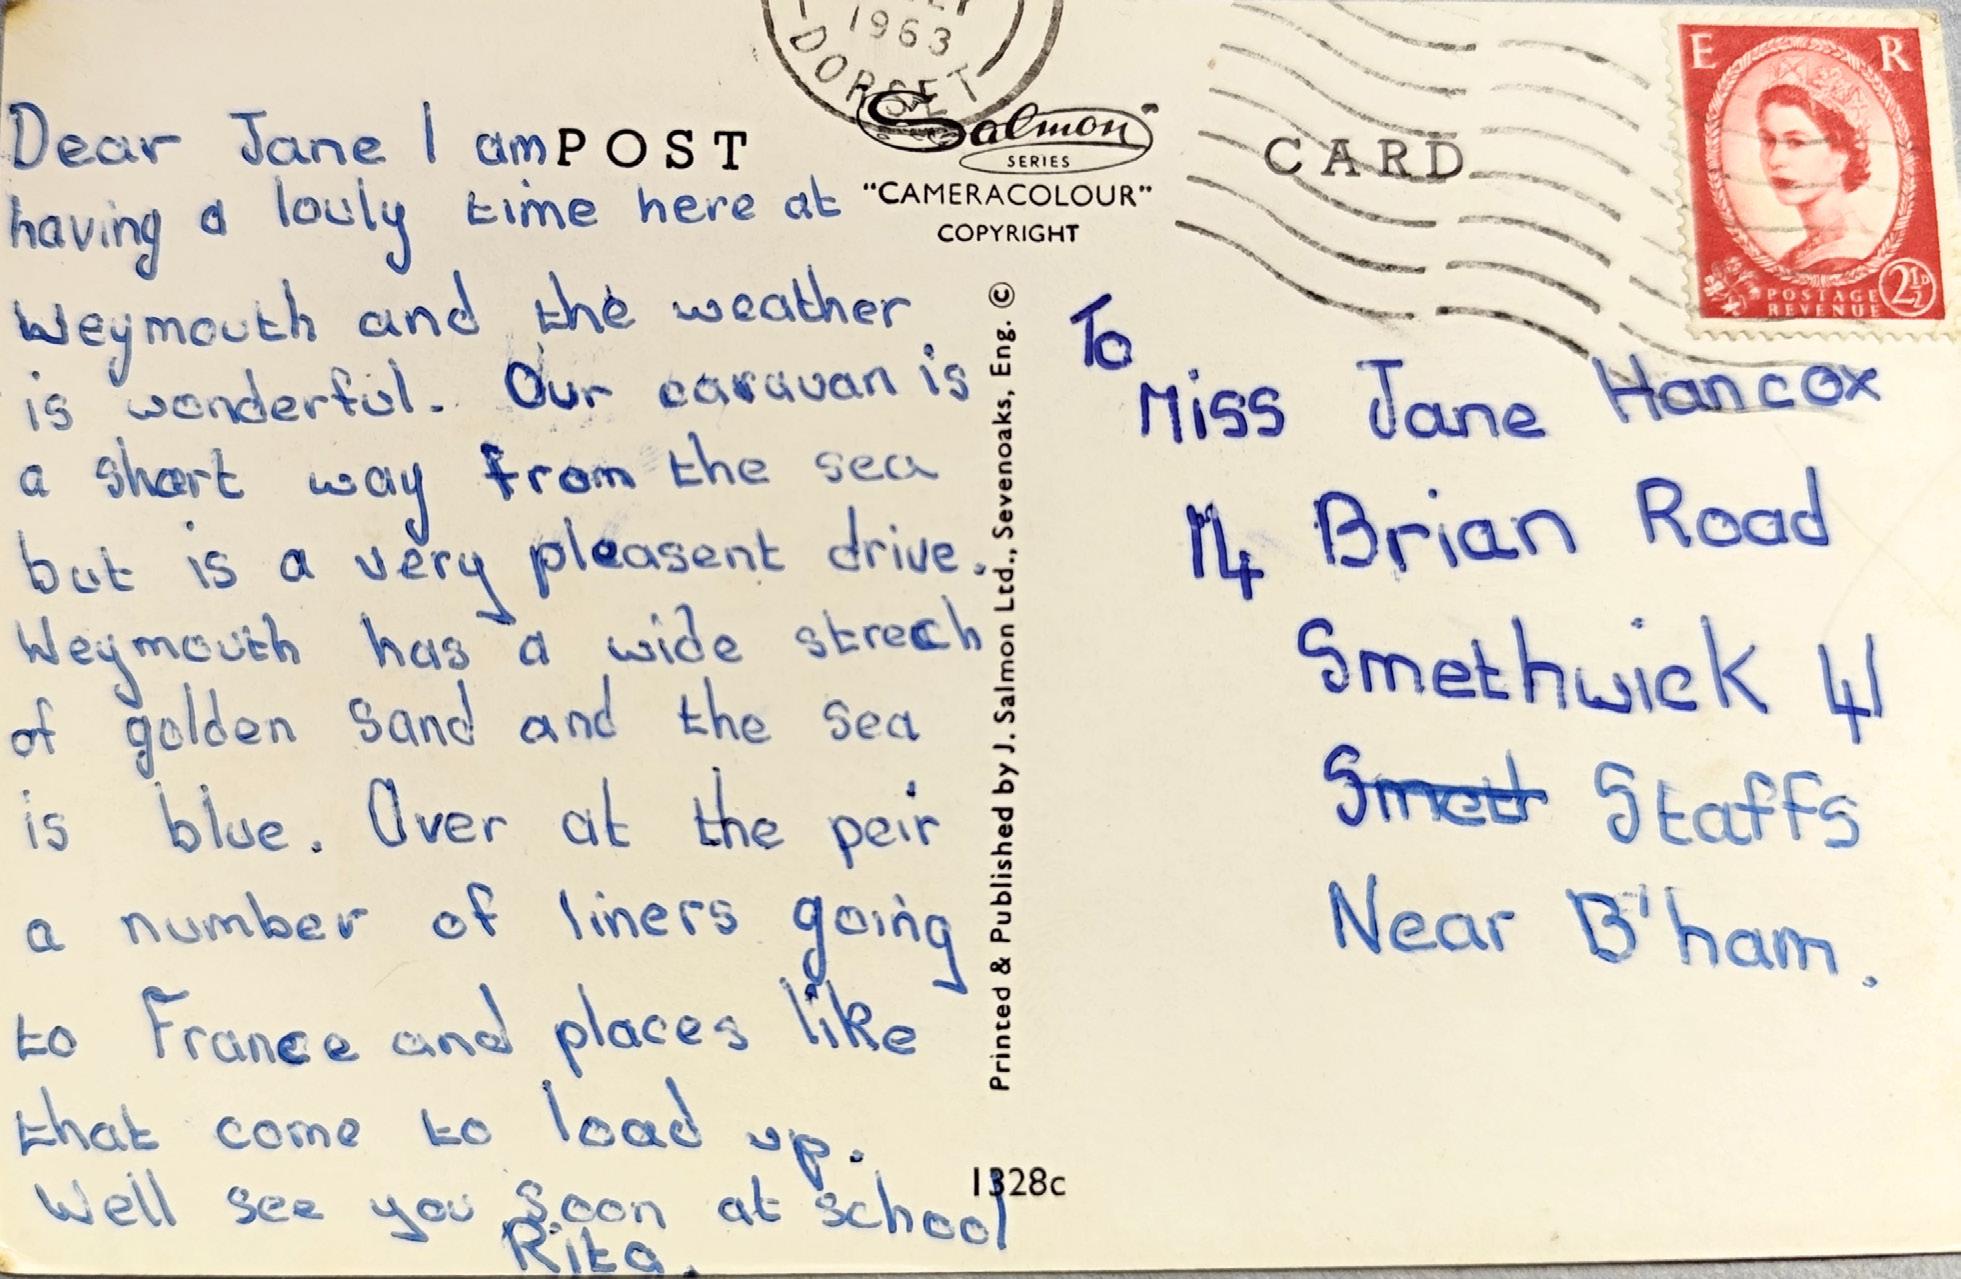 1963
DORSET
Dear Jane I am
having a louly time here at
Weymouth and the weather
is wonderful. Our caravan is
a short way from the sea
but is a very pleasent drive.
Weymouth has a wide strech
of golden sand and the sea
is blue. Over at the peir
a number of liners going
to France and places like
that come to load up.
Well see you soon at school
Rita.
POST CARD
Salmon
SERIES
"CAMERACOLOUR"
COPYRIGHT
Printed & Published by J. Salmon Ltd., Sevenoaks, Eng. ©
1328c
E R
POSTAGE
REVENUE
2½D
To
Miss Jane Hancox
14 Brian Road
Smethwick 41
Smeth Staffs
Near B'ham.